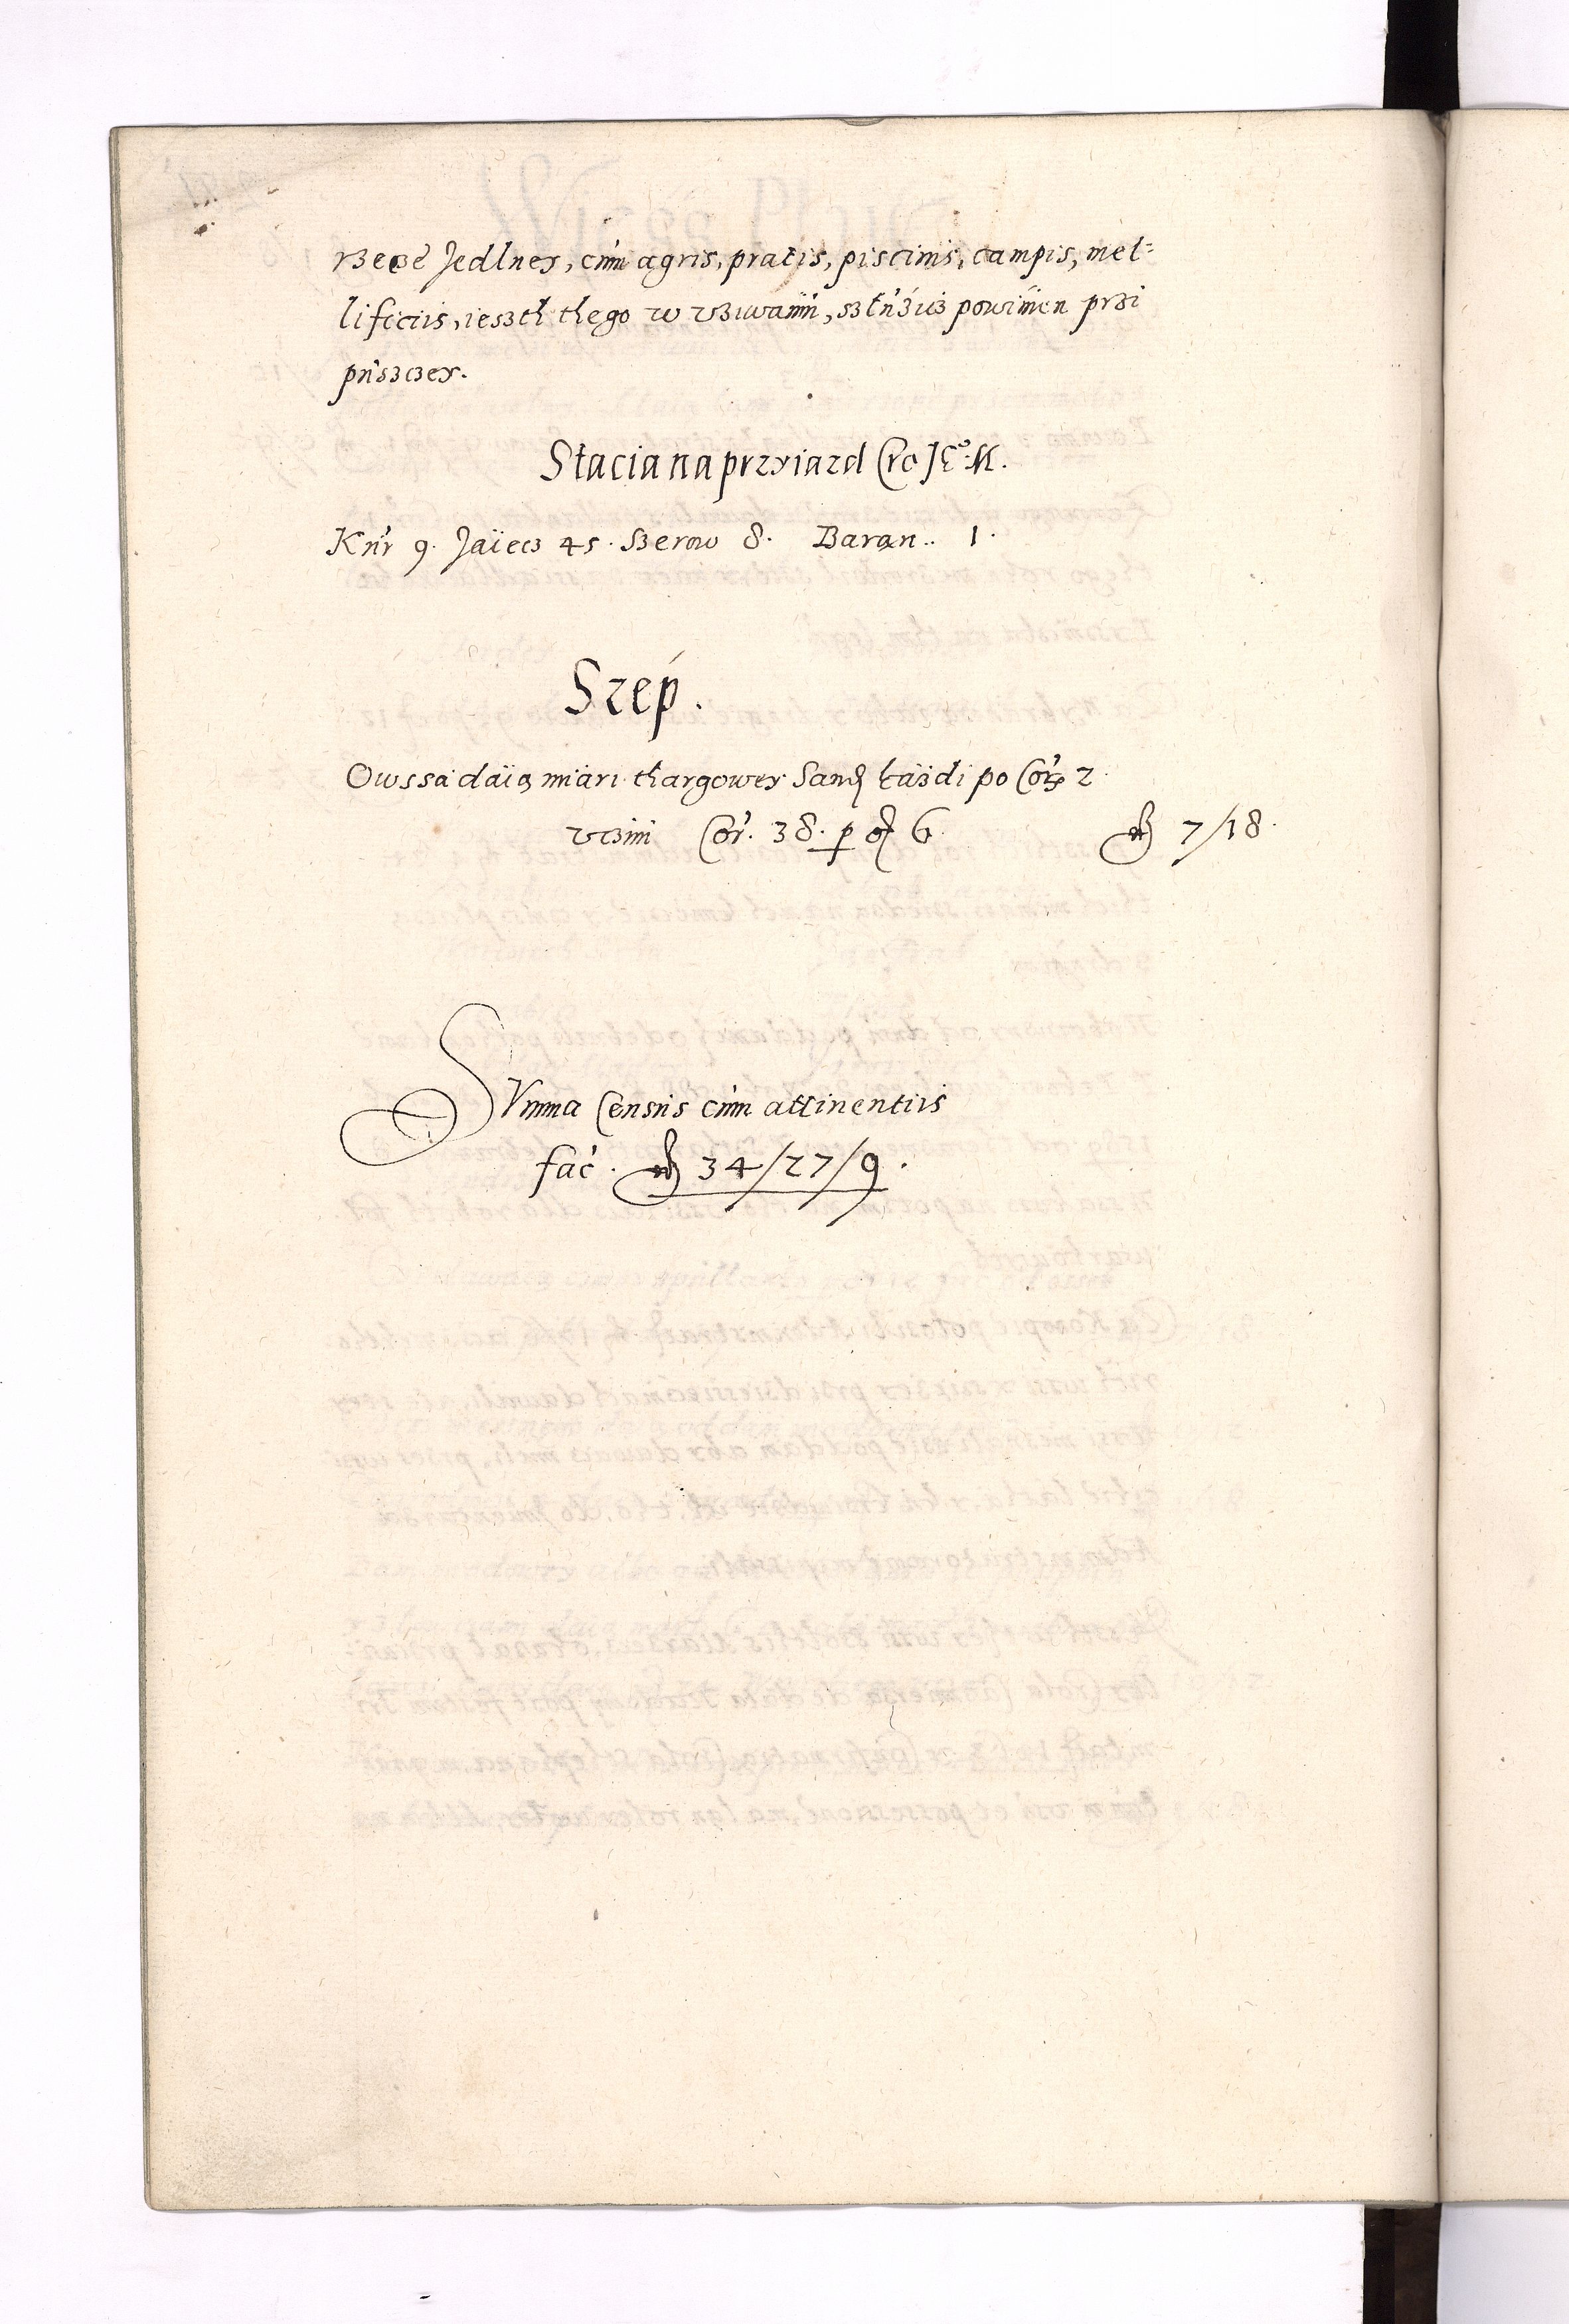 rzece Jedlney, cum agris, pratis, piscinis, campis, mel=
lificiis, ieszth thego w vziwaniu, szluzic powinien przi
puszczey.
Stacia na przyiazd Cro JE° K. M.
Kur 9. Jaiecz 45. Serow 8. Baran.. 1.
Szep.
Owssa daią miari thargowey Sand kazdi po Cor 2
vczini Cor. 38. p gr 6. fl 7/18.
Summa Census cum attinentiis
fac. fl 34/27/9.